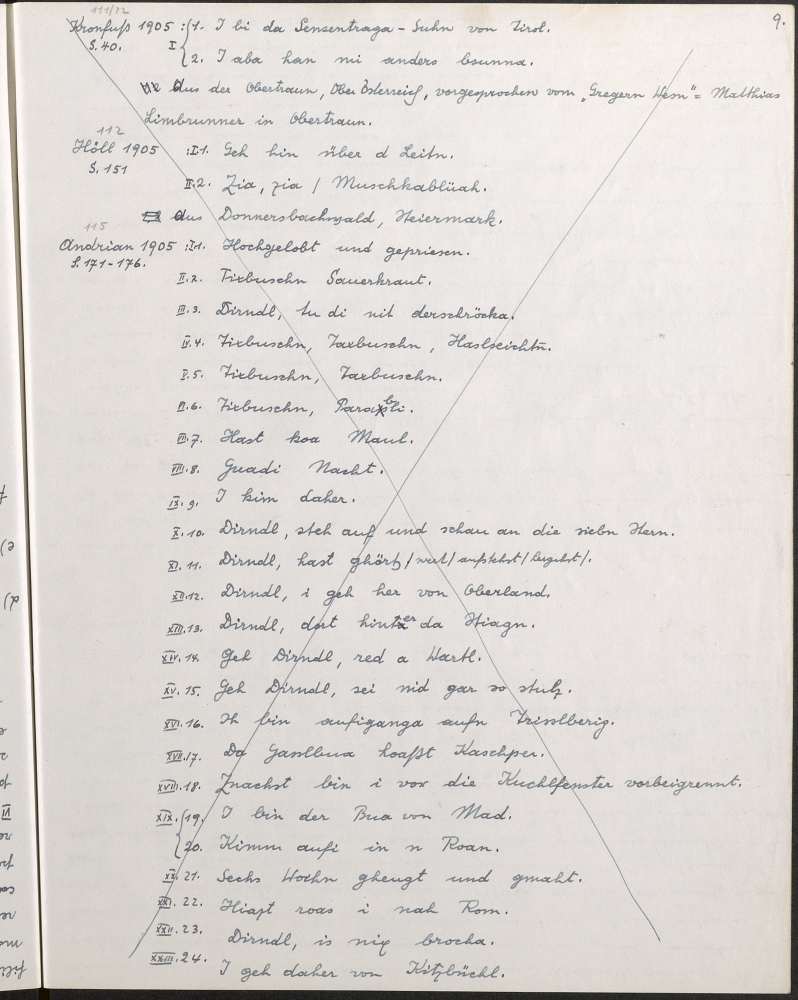 9.
111/12
Kronfuß 1905 : 1. I bi da Sensentraga-Suhn von Tirol.
S. 40. I 2. I aba han mi anders bsunna.
Aus der Obertraun, Ober Österreich, vorgesprochen vom „Gregern Wem“ = Matthias
Limbrunner in Obertraun.
112
Höll 1905 : I.1. Geh hin über d Leitn.
S. 151
II.2. Zia, zia / Muschkablüah.
aus Donnersbachwald, Steiermark.
115
Andrian 1905 : I.1. Hochgelobt und gepriesen.
S. 171-176.
II.2. Tixbuschn Sauerkraut.
III.3. Dirndl, tu di nit derschröcka.
IV.4. Tixbuschn, Taxbuschn, Haslseichtn.
V.5. Tixbuschn, Taxbuschn.
VI.6. Tixbuschn,
VII.7. Hast koa Maul.
VIII.8. Guadi Nacht.
IX.9. I kim daher.
X.10. Dirndl, steh auf und schau an die siebn Stern.
XI.11. Dirndl, hast ghört / aufstehst /
XII.12. Dirndl, i geh her von Oberland.
XIII.13. Dirndl, dort hinter da Stiagn.
XIV.14. Geh Dirndl, red a Wartl.
XV.15. Geh Dirndl, sei nid gar so stulz.
XVI.16. Ih bin aufiganga aufn Trisslberig.
XVII.17. Da Gasslbua hoaßt Kaschper.
XVIII.18. Znachst bin i vor die Kuchlfenster vorbeigrennt.
XIX. 19. I bin der Bua von Mad.
20. Kimm aufi in n Roan.
XX.21. Sechs Wochn gheugt und gmaht.
XXI.22. Hiazt roas i nah Rom.
XXII.23. Dirndl, is nix brocha.
XXIII.24. I geh daher von Kitzbüchl.